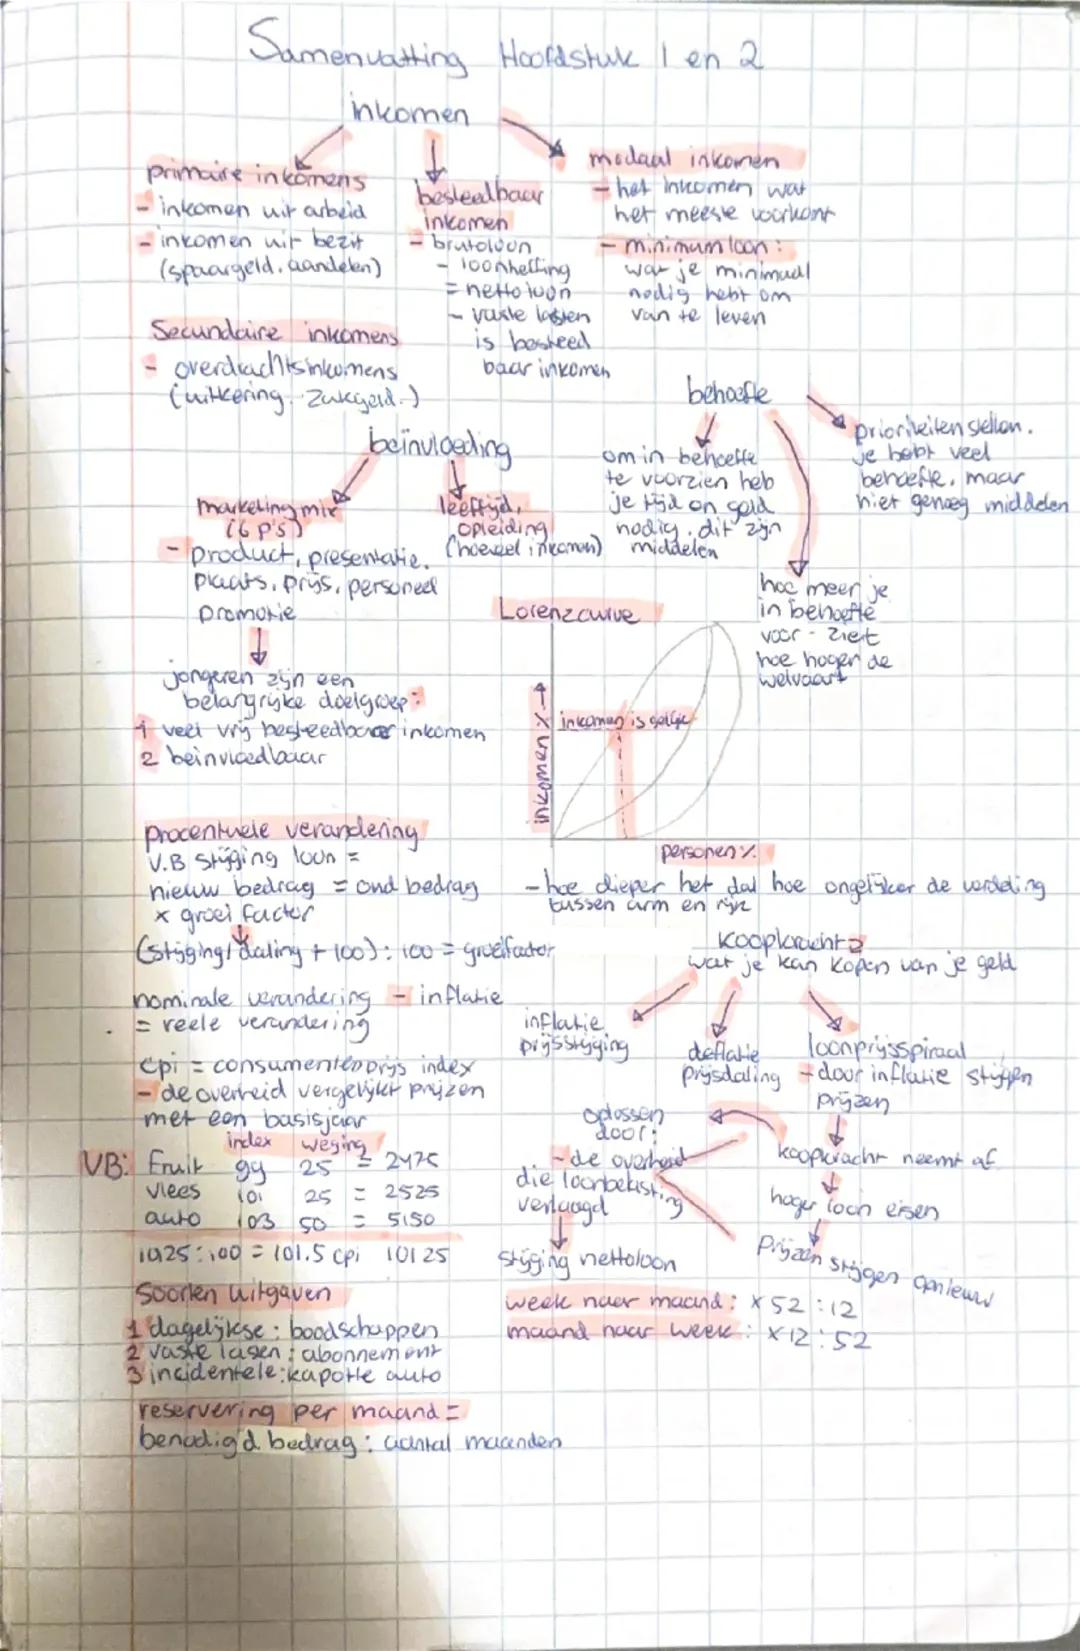 Samenvatting Hoofdstuk 1 en 2
inkomen
primaire inkomens
- inkomen uit arbeid
- inkomen uit bezit
(spaargeld, aandelen)
Secundaire inkomens
- overdrachtsinkomens
(uitkering, zakgeld.)
besteedbaar
inkomen
- brutoloon
- loonheffing
= nettoloon
- vaste lasten
is besteed
baar inkomen
modaal inkomen
- het inkomen wat
het meeste voorkomt
- minimumloon:
wat je minimaal
nodig hebt om
van te leven
beïnvloeding
marketingmix
(6 p's)
- product, presentatie,
plaats, prijs, personeel
promotie
jongeren zijn een
belangrijke doelgroep:
1 veel vrij besteedbaar inkomen
2 beinvloedbaar
leeftijd,
opleiding
(hoeveel inkomen)
behoefte
om in behoefte
te voorzien heb
je tijd en geld
nodig, dit zijn
middelen
prioriteiten stellen.
je hebt veel
behoefte, maar
niet genoeg middelen
hoe meer je
in behoefte
voor-ziet
hoe hoger de
welvaart
Lorenzcurve
inkomen %
inkomen is gelijk
personen %
- hoe dieper het dal hoe ongelijker de verdeling
tussen arm en rijk
procentuele verandering
V.B stijging loon =
nieuw bedrag = oud bedrag
x groei factor
(stijging/daling + 100) : 100 = groeifactor
nominale verandering - inflatie
= reele verandering
cpi = consumentenprijs index
- de overheid vergelijkt prijzen
met een basisjaar
index weging
VB: Fruit 99 25 = 2475
vlees 101 25 = 2525
auto 103 50 = 5150
10125:100 = 101.5 cpi 10125
Soorten uitgaven
1 dagelijkse: boodschappen
2 vaste lasen: abonnement
3 incidentele: kapotte auto
reservering per maand =
benodigd bedrag : aantal maanden
koopkracht =
wat je kan kopen van je geld
inflatie
prijsstijging
deflatie
prijsdaling
loonprijsspiraal
- door inflatie stijgen
prijzen
koopkracht neemt af
hoger loon eisen
Prijzen stijgen opnieuw
oplossen
door:
- de overheid
die loonbelasting
verlaagd
stijging nettoloon
week naar maand: x 52 : 12
maand naar week: x 12 : 52